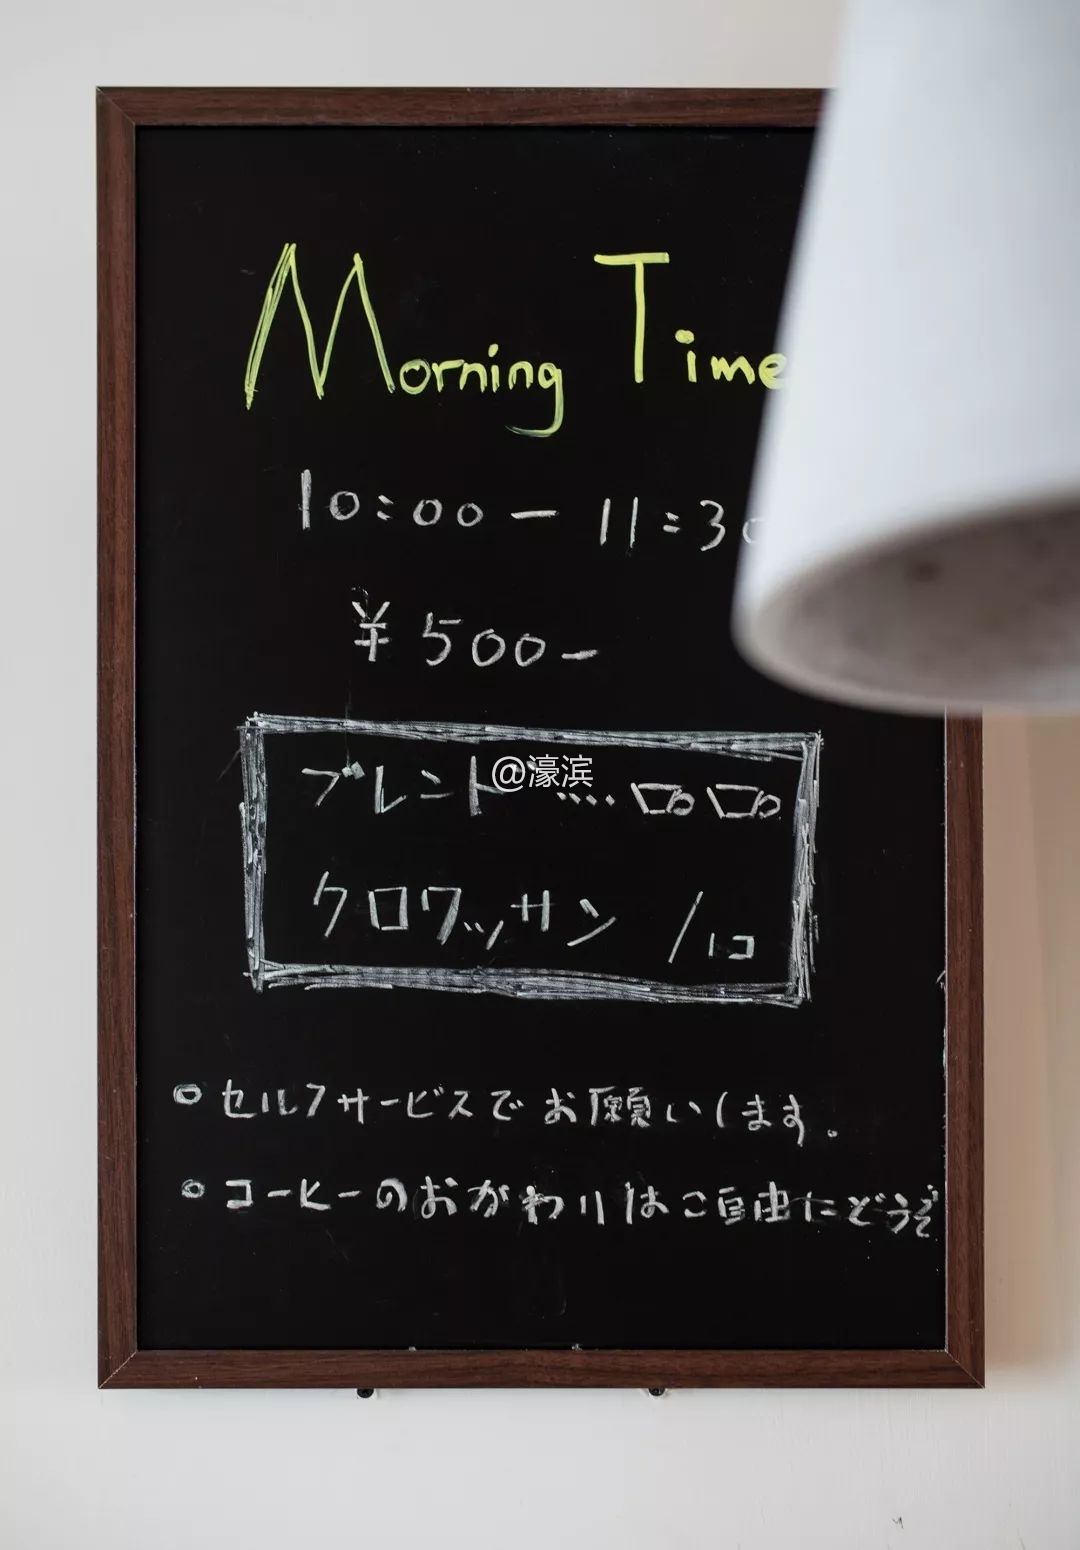 Morning Time
10:00 - 11:30
¥500-
ブレンド ....
クロワッサン /1コ
○セルフサービスでお願いします。
○コーヒーのおかわりはご自由にどうぞ
@濠滨